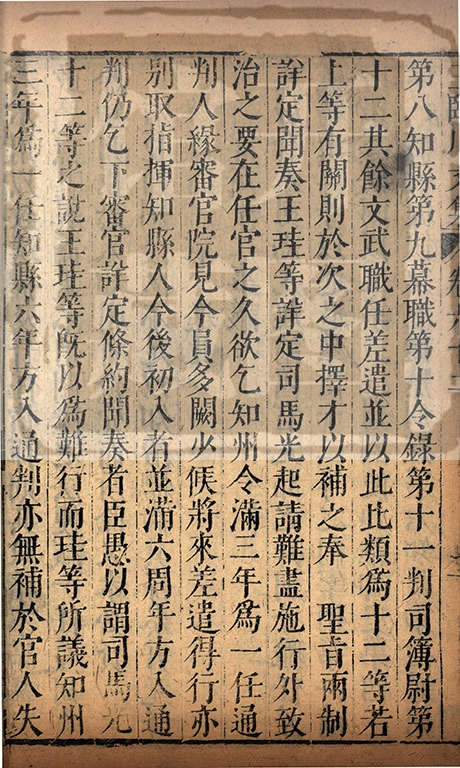 第八知縣第九幕職第十令錄第十一判司簿尉第
十二其餘文武職任差遣並以此比類爲十二等若
上等有闕則於次之中擇才以補之奉　聖旨兩制
詳定聞奏王珪等詳定司馬光起請難盡施行外致
治之要在任官之久欲乞知州令滿三年爲一任通
判人緣審官院見今員多闕少候將來差遣得行亦
別取指揮知縣人今後初入者並滿六周年方入通
判仍乞下審官詳定條約聞奏者臣愚以謂司馬光
十二等之說王珪等既以爲難行而珪等所議知州
三年爲一任知縣六年方入通判亦無補於官人失